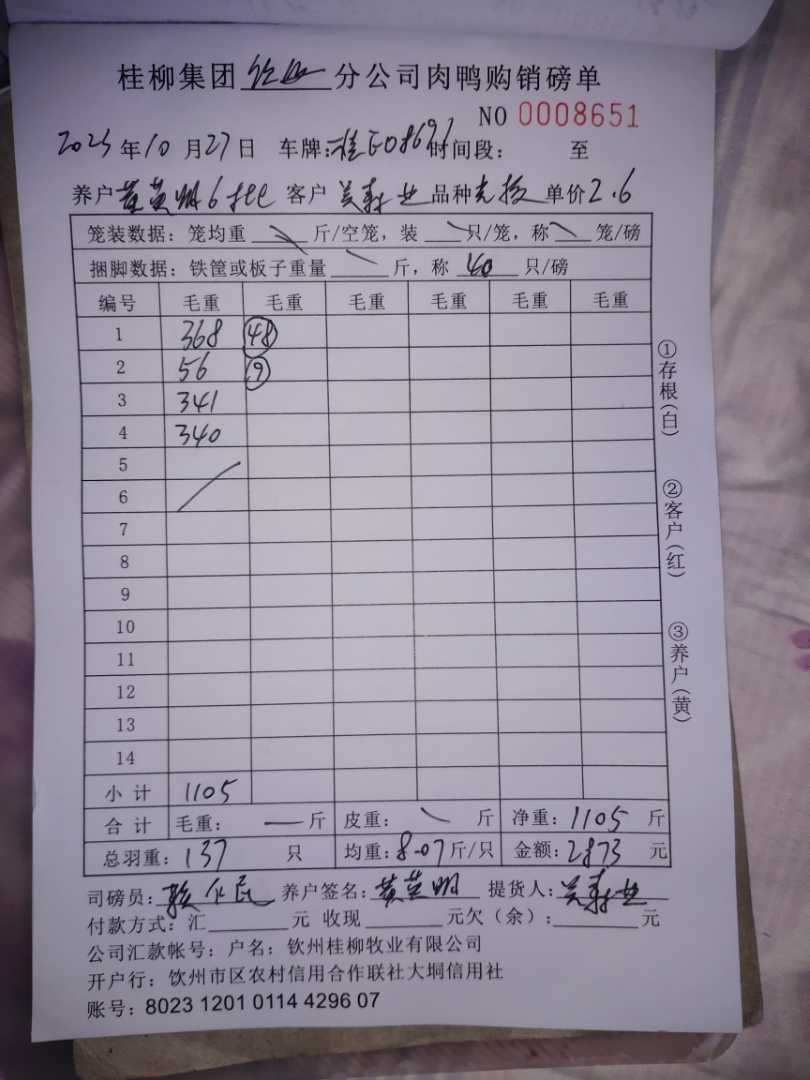 桂柳集团 分公司肉鸭购销磅单
NO 0008651
2025年10月27日 车牌:桂E08691 时间段: 至
养户 6批 客户 吴 业 品种 单价2.6
笼装数据: 笼均重 斤/空笼, 装 只/笼, 称 笼/磅
捆脚数据: 铁筐或板子重量 斤, 称 40 只/磅
编号 毛重 毛重 毛重 毛重 毛重 毛重
1 368 48
2 56 9
3 341
4 340
5
6
7
8
9
10
11
12
13
14
小计 1105
合计 毛重: 斤 皮重: 斤 净重: 1105 斤
总羽重: 137 只 均重: 8.07斤/只 金额: 2873 元
司磅员: 养户签名: 提货人: 吴
付款方式: 汇 元 收现 元欠(余): 元
公司汇款帐号: 户名: 钦州桂柳牧业有限公司
开户行: 钦州市区农村信用合作联社大垌信用社
账号: 8023 1201 0114 4296 07
①存根(白)
②客户(红)
③养户(黄)